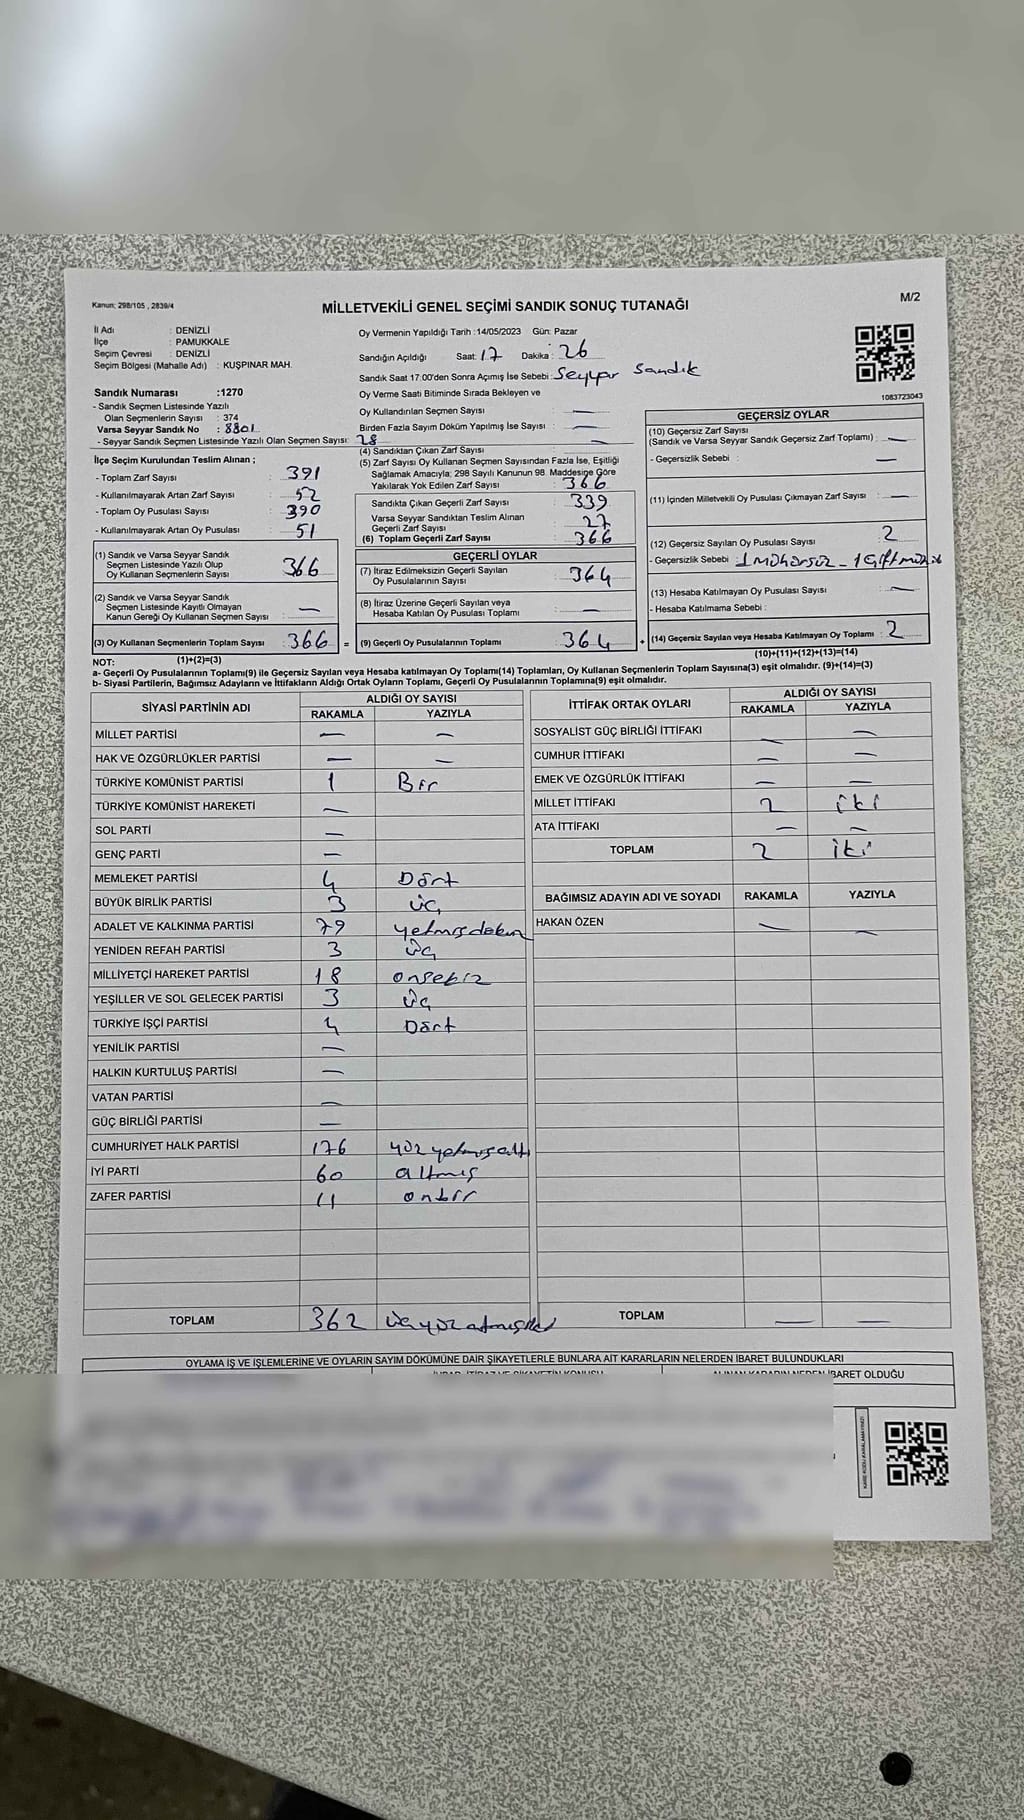 Kanun: 298/105 , 2839/4
MİLLETVEKİLİ GENEL SEÇİMİ SANDIK SONUÇ TUTANAĞI
M/2
İl Adı : DENİZLİ
İlçe : PAMUKKALE
Seçim Çevresi : DENİZLİ
Seçim Bölgesi (Mahalle Adı) : KUŞPINAR MAH.
Oy Vermenin Yapıldığı Tarih :14/05/2023 Gün: Pazar
Sandığın Açıldığı Saat: 17 Dakika : 26
Sandık Saat 17:00'den Sonra Açımış İse Sebebi: Seyyar Sandık
Oy Verme Saati Bitiminde Sırada Bekleyen ve
Oy Kullandırılan Seçmen Sayısı : —
Birden Fazla Sayım Döküm Yapılmış İse Sayısı : —
1083723043
Sandık Numarası :1270
- Sandık Seçmen Listesinde Yazılı
Olan Seçmenlerin Sayısı : 374
Varsa Seyyar Sandık No : 8801
- Seyyar Sandık Seçmen Listesinde Yazılı Olan Seçmen Sayısı: 28
İlçe Seçim Kurulundan Teslim Alınan ;
- Toplam Zarf Sayısı : 391
- Kullanılmayarak Artan Zarf Sayısı : 52
- Toplam Oy Pusulası Sayısı : 390
- Kullanılmayarak Artan Oy Pusulası : 51
(1) Sandık ve Varsa Seyyar Sandık
Seçmen Listesinde Yazılı Olup
Oy Kullanan Seçmenlerin Sayısı : 366
(2) Sandık ve Varsa Seyyar Sandık
Seçmen Listesinde Kayıtlı Olmayan
Kanun Gereği Oy Kullanan Seçmen Sayısı : —
(3) Oy Kullanan Seçmenlerin Toplam Sayısı : 366 =
(4) Sandıktan Çıkan Zarf Sayısı —
(5) Zarf Sayısı Oy Kullanan Seçmen Sayısından Fazla İse, Eşitliği
Sağlamak Amacıyla; 298 Sayılı Kanunun 98. Maddesine Göre
Yakılarak Yok Edilen Zarf Sayısı : 366
Sandıkta Çıkan Geçerli Zarf Sayısı : 339
Varsa Seyyar Sandıktan Teslim Alınan
Geçerli Zarf Sayısı : 27
(6) Toplam Geçerli Zarf Sayısı : 366
GEÇERLİ OYLAR
(7) İtiraz Edilmeksizin Geçerli Sayılan
Oy Pusulalarının Sayısı : 364
(8) İtiraz Üzerine Geçerli Sayılan veya
Hesaba Katılan Oy Pusulası Toplamı : —
(9) Geçerli Oy Pusulalarının Toplamı : 364 +
GEÇERSİZ OYLAR
(10) Geçersiz Zarf Sayısı
(Sandık ve Varsa Seyyar Sandık Geçersiz Zarf Toplamı) : —
- Geçersizlik Sebebi : —
(11) İçinden Milletvekili Oy Pusulası Çıkmayan Zarf Sayısı : —
(12) Geçersiz Sayılan Oy Pusulası Sayısı : 2
- Geçersizlik Sebebi : 1 mühürsüz - 1 Çift
(13) Hesaba Katılmayan Oy Pusulası Sayısı : —
- Hesaba Katılmama Sebebi :
(14) Geçersiz Sayılan veya Hesaba Katılmayan Oy Toplamı : 2
NOT: (1)+(2)=(3)
(10)+(11)+(12)+(13)=(14)
a- Geçerli Oy Pusulalarının Toplamı(9) ile Geçersiz Sayılan veya Hesaba katılmayan Oy Toplamı(14) Toplamları, Oy Kullanan Seçmenlerin Toplam Sayısına(3) eşit olmalıdır. (9)+(14)=(3)
b- Siyasi Partilerin, Bağımsız Adayların ve İttifakların Aldığı Ortak Oyların Toplamı, Geçerli Oy Pusulalarının Toplamına(9) eşit olmalıdır.
SİYASİ PARTİNİN ADI ALDIĞI OY SAYISI
RAKAMLA YAZIYLA
MİLLET PARTİSİ — —
HAK VE ÖZGÜRLÜKLER PARTİSİ — —
TÜRKİYE KOMÜNİST PARTİSİ 1 Bir
TÜRKİYE KOMÜNİST HAREKETİ —
SOL PARTİ —
GENÇ PARTİ —
MEMLEKET PARTİSİ 4 Dört
BÜYÜK BİRLİK PARTİSİ 3 üç
ADALET VE KALKINMA PARTİSİ 79 yetmişdokuz
YENİDEN REFAH PARTİSİ 3 üç
MİLLİYETÇİ HAREKET PARTİSİ 18 onsekiz
YEŞİLLER VE SOL GELECEK PARTİSİ 3 üç
TÜRKİYE İŞÇİ PARTİSİ 4 Dört
YENİLİK PARTİSİ —
HALKIN KURTULUŞ PARTİSİ —
VATAN PARTİSİ —
GÜÇ BİRLİĞİ PARTİSİ —
CUMHURİYET HALK PARTİSİ 176 yüz yetmişaltı
İYİ PARTİ 60 altmış
ZAFER PARTİSİ 11 onbir
TOPLAM 362 üçyüz atmışiki
İTTİFAK ORTAK OYLARI ALDIĞI OY SAYISI
RAKAMLA YAZIYLA
SOSYALİST GÜÇ BİRLİĞİ İTTİFAKI — —
CUMHUR İTTİFAKI — —
EMEK VE ÖZGÜRLÜK İTTİFAKI — —
MİLLET İTTİFAKI 2 iki
ATA İTTİFAKI — —
TOPLAM 2 iki
BAĞIMSIZ ADAYIN ADI VE SOYADI RAKAMLA YAZIYLA
HAKAN ÖZEN — —
TOPLAM — —
OYLAMA İŞ VE İŞLEMLERİNE VE OYLARIN SAYIM DÖKÜMÜNE DAİR ŞİKAYETLERLE BUNLARA AİT KARARLARIN NELERDEN İBARET BULUNDUKLARI
İHBAR, İTİRAZ VE ŞİKAYETİN KONUSU
ALINAN KARARIN NEDEN İBARET OLDUĞU
KARE KODU KARALAMAYINIZ!